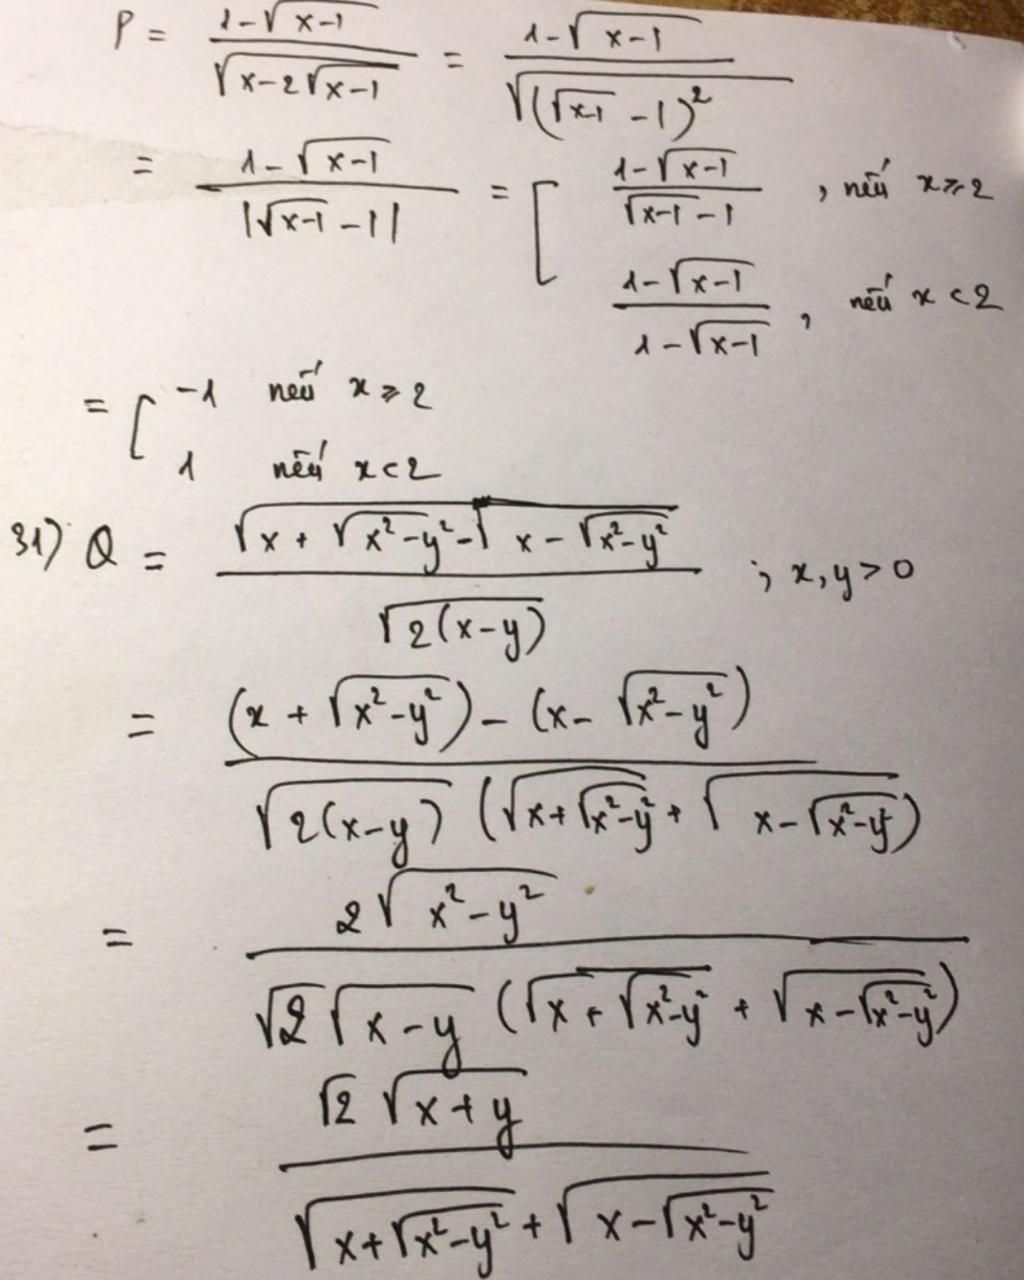 P = (1-√(x-1))/√(x-2√(x-1)) = (1-√(x-1))/√((√(x-1) -1)²)
= (1-√(x-1))/|√(x-1) -1| = [ (1-√(x-1))/(√(x-1) -1) , nếu x ≥ 2
(1-√(x-1))/(1-√(x-1)) , nếu x < 2
= [ -1 nếu x ≥ 2
1 nếu x < 2
31) Q = (√(x + √(x²-y²)) - √(x - √(x²-y²)))/√(2(x-y)) ; x, y > 0
= ((x + √(x²-y²)) - (x - √(x²-y²)))/(√(2(x-y)) (√(x+√(x²-y²)) + √(x-√(x²-y²))))
= 2√(x²-y²)/(√2 √(x-y) (√(x + √(x²-y²)) + √(x-√(x²-y²))))
= √2 √(x+y)/(√(x+√(x²-y²)) + √(x-√(x²-y²)))